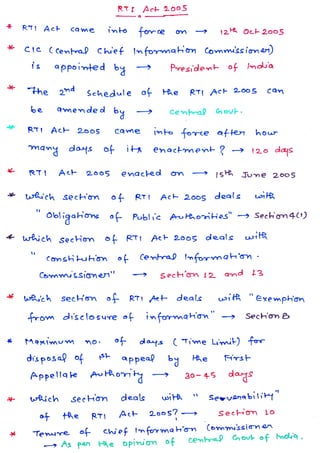 RTI Act 2005
* RTI Act came into force on → 12th Oct 2005
* CIC (Central Chief Information Commissioner)
is appointed by → President of India
* The 2nd Schedule of the RTI Act 2005 can
be amended by → Central Govt.
* RTI Act 2005 came into force after how
many days of its enactment? → 120 days
* RTI Act 2005 enacted on → 15th June 2005
* Which section of RTI Act 2005 deals with
"Obligations of Public Authorities" → Section 4(1)
* Which section of RTI Act 2005 deals with
"Constitution of Central Information
Commissioner" → Section 12 and 13
* Which section of RTI Act deals with "Exemption
from disclosure of information" → Section 8
* Maximum no. of days (Time Limit) for
disposal of 1st appeal by the First
Appellate Authority → 30-45 days
* Which section deals with "Severability"
of the RTI Act 2005? → Section 10
* Tenure of Chief Information Commissioner
→ As per the opinion of Central Govt of India.